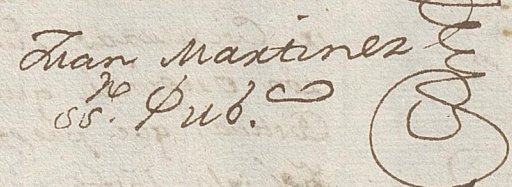 Juan Martinez
ss.no Pub.